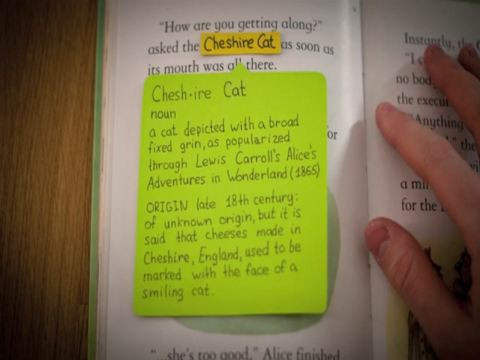 "How are you getting along?"
asked the Cheshire Cat as soon as
its mouth was all there.
Chesh·ire Cat
noun
a cat depicted with a broad
fixed grin, as popularized
through Lewis Carroll's Alice's
Adventures in Wonderland (1865)
ORIGIN late 18th century:
of unknown origin, but it is
said that cheeses made in
Cheshire, England, used to be
marked with the face of a
smiling cat.
for
"...she's too good," Alice finished
Instantly, the
"I
no
the
"Anything
the
a
for the